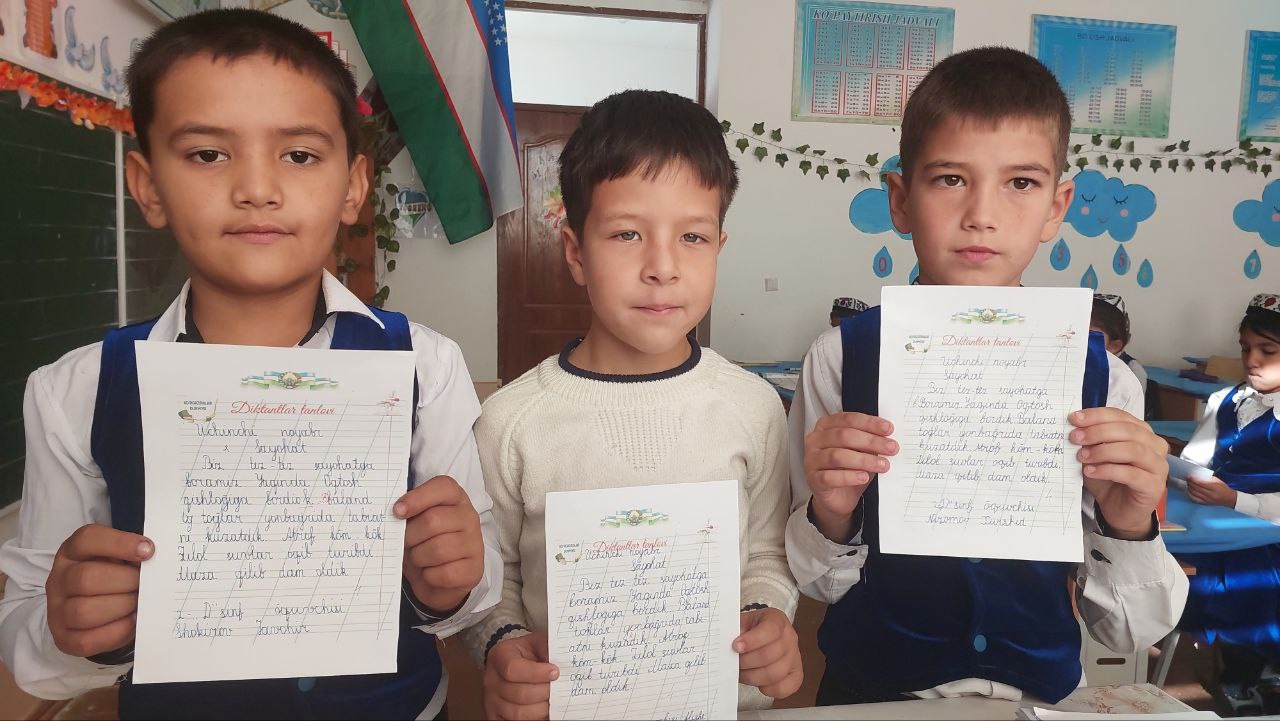 KO'PAYTIRISH JADVALI
BO'LISH JADVALI
Diktantlar tanlovi
Uchinchi noyabr
Sayohat
Biz tez-tez sayohatga
boramiz Yaqinda Oqtosh
qishlog'iga bordik Baland
tog'lar yonbag'rida tabiat
ni kuzatdik Atrof köm kök
Zilol suvlar oqib turibdi
Maza qilib dam oldik
2-"D" sinf oquvchisi
Diktantlar tanlovi
Uchinchi noyabr
Sayohat
Biz tez tez sayohatga
boramiz Yaqinda Oqtosh
qishlogiga bordik Baland
toğlar yonbağrida tabi-
atni kuzatdik Atrof
köm-kök Zilol suvlar
oqib turibdi Maza qilib
dam oldik
Diktantlar tanlovi
Uchinchi noyabr
Sayohat
Biz tez-tez sayohatga
Boramiz. Yaqinda Oqtosh
qishloğiga bordik. Baland
toğlar yonbağrida tabiatni
kuzatdik. Atrof köm-kök
Zilol suvlar oqib turibdi.
Maza qilib dam oldik.
2"D" sinf öquvchisi
Nizomov
0
3
5
7